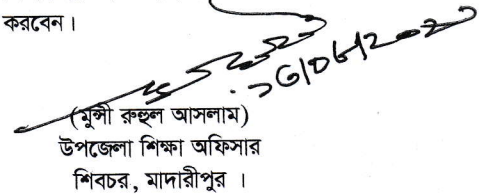 করবেন।
(মুন্সী রুহুল আসলাম)
উপজেলা শিক্ষা অফিসার
শিবচর, মাদারীপুর ।